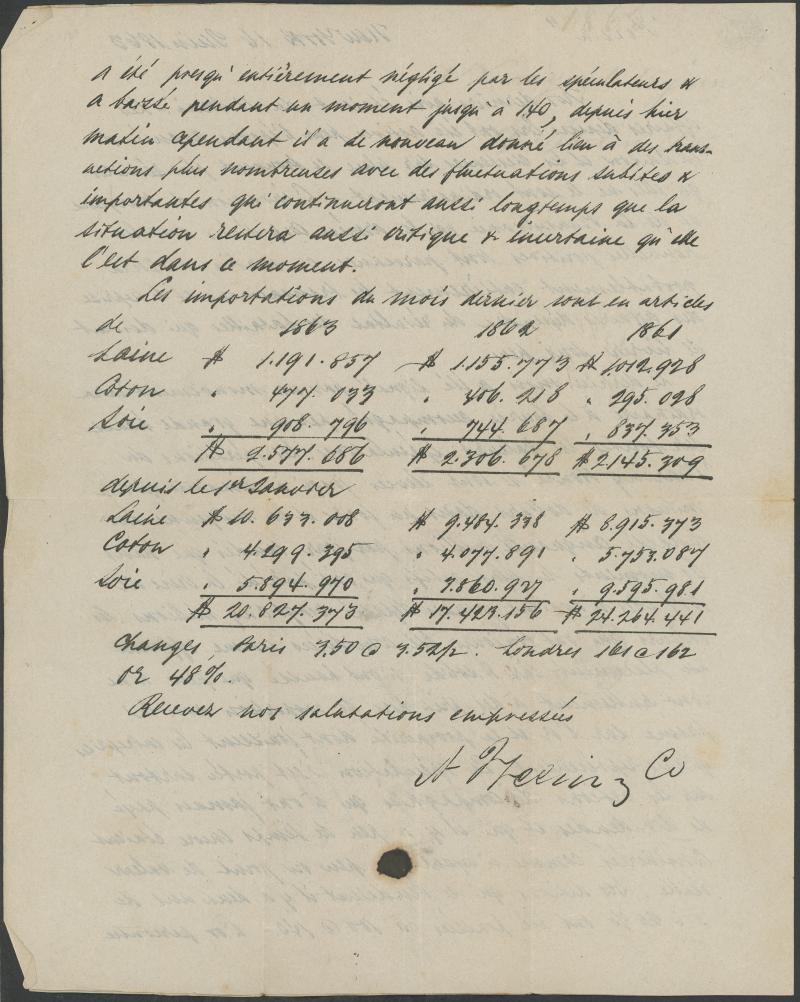 a été presqu'entièrement négligé par les spéculateurs &
a baissé pendant un moment jusqu'à 140, depuis hier
matin cependant il a de nouveau donné lieu à des trans-
actions plus nombreuses avec des fluctuations subites &
importantes qui continueront aussi longtemps que la
situation restera aussi critique & incertaine qu'elle
l'est dans ce moment.
Les importations du mois dernier sont en articles
de 1863 1862 1861
Laine $ 1.191.857 $ 1.155.773 $ 1012.928
Coton " 477.033 " 406.218 " 295.028
Soie " 908.796 " 744.687 " 837.353
$ 2.577.686 $ 2.306.678 $ 2.145.309
depuis le 1er Janvier
Laine $ 10.633.008 $ 9.484.338 $ 8.915.373
Coton " 4.299.395 " 4.077.891 " 5.753.087
Soie " 5.894.970 " 3.860.927 " 9.595.981
$ 20.827.373 $ 17.423.156 $ 24.264.441
Changes, Paris 3.50 @ 3.52½. Londres 161 @ 162
or 48%.
Recevez nos salutations empressées
A Iselin & Co